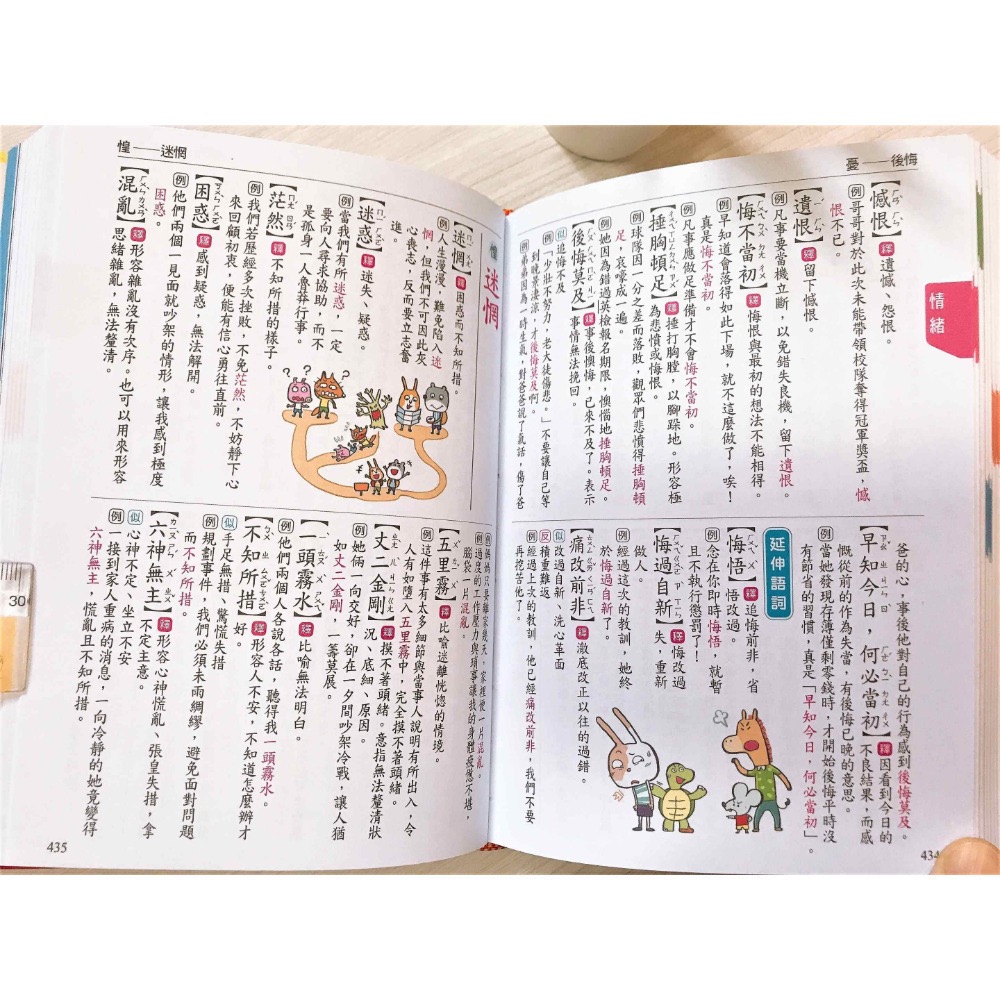 憂——後悔
情緒
【憾恨】釋遺憾、怨恨。
例哥哥對於此次未能帶領校隊奪得冠軍獎盃，憾
恨不已。
【遺恨】釋留下憾恨。
例凡事要當機立斷，以免錯失良機，留下遺恨。
【悔不當初】釋悔恨與最初的想法不能相得。
例早知道會落得如此下場，就不這麼做了，唉！
真是悔不當初。
例凡事應做足準備才不會悔不當初。
【捶胸頓足】釋捶打胸膛，以腳跺地。形容極
為悲憤或悔恨。
例球隊因一分之差而落敗，觀眾們悲憤得捶胸頓
足，哀嚎成一遍。
例她因為錯過英檢報名期限，懊惱地捶胸頓足。
【後悔莫及】釋事後懊悔，已來不及了。表示
事情無法挽回。
似追悔不及
例「少壯不努力，老大徒傷悲。」不要讓自己等
到晚景淒涼，才後悔莫及啊。
例弟弟因為一時生氣，對爸爸說了氣話，傷了爸
爸的心，事後他對自己的行為感到後悔莫及。
【早知今日，何必當初】釋因看到今日的
不良結果，而感
慨從前的作為失當，有後悔已晚的意思。
例當她發現存簿僅剩零錢時，才開始後悔平時沒
有節省的習慣，真是「早知今日，何必當初」。
延伸語詞
【悔悟】釋追悔前非，省
悟改過。
例念在你即時悔悟，就暫
且不執行懲罰了！
【悔過自新】釋悔改過
失，重新
做人。
例經過這次的教訓，她終
於悔過自新了。
【痛改前非】釋澈底改正以往的過錯。
似改過自新、洗心革面
反積重難返
例經過上次的教訓，他已經痛改前非，我們不要
再挖苦他了。
434
惶——迷惘
惶 迷惘
【迷惘】釋困惑而不知所措。
例人生漫漫，難免陷入迷
惘，但我們不可因此灰
心喪志，反而要立志奮
進。
【迷惑】釋迷失、疑惑。
例當我們有所迷惑，一定
要向人尋求協助，而不
是孤身一人費莽行事。
【茫然】釋不知所措的樣子。
例我們若歷經多次挫敗，不免茫然，不妨靜下心
來回顧初衷，便能有信心勇往直前。
【困惑】釋感到疑惑，無法解開。
例他們兩個一見面就吵架的情形，讓我感到極度
困惑。
【混亂】釋形容雜亂沒有次序。也可以用來形容
思緒雜亂，無法釐清。
例媽媽只是離家幾天，家裡便一片混亂。
例過度的工作壓力與瑣事讓我的身體疲憊不堪，
腦袋一片混亂。
【五里霧】釋比喻迷離恍惚的情境。
例這件事有太多細節與當事人說明有所出入，令
人有如墮入五里霧中，完全摸不著頭緒。
【丈二金剛】釋摸不著頭緒。意指無法釐清狀
況、底細、原因。
例她倆一向交好，卻在一夕間吵架冷戰，讓人猶
如丈二金剛，一籌莫展。
【一頭霧水】釋比喻無法明白。
例他們兩個人各說各話，聽得我一頭霧水。
【不知所措】釋形容人不安，不知道怎麼辦才
好。
似手足無措、驚慌失措
例規劃事件，我們必須未雨綢繆，避免面對問題
而不知所措。
【六神無主】釋形容心神慌亂、張皇失措，拿
不定主意。
似心神不定、坐立不安
例一接到家人重病的消息，一向冷靜的她竟變得
六神無主，慌亂且不知所措。
435
30